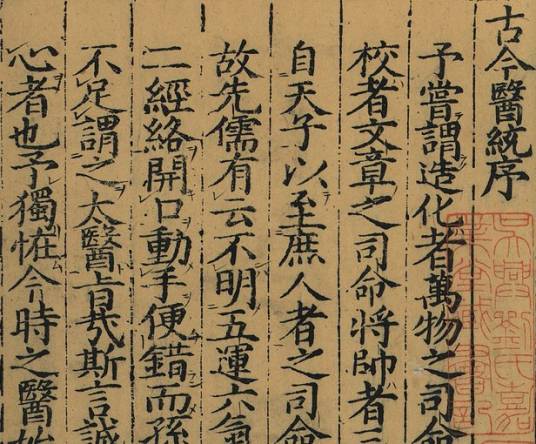 古今醫統序
予嘗謂造化者萬物之司命
校者文章之司命將帥者三
自天子以至庶人者之司命
故先儒有云不明五運六氣
二經絡開口動手便錯而孫
不足謂之太醫旨哉斯言誠
心者也予獨怪今時之醫始